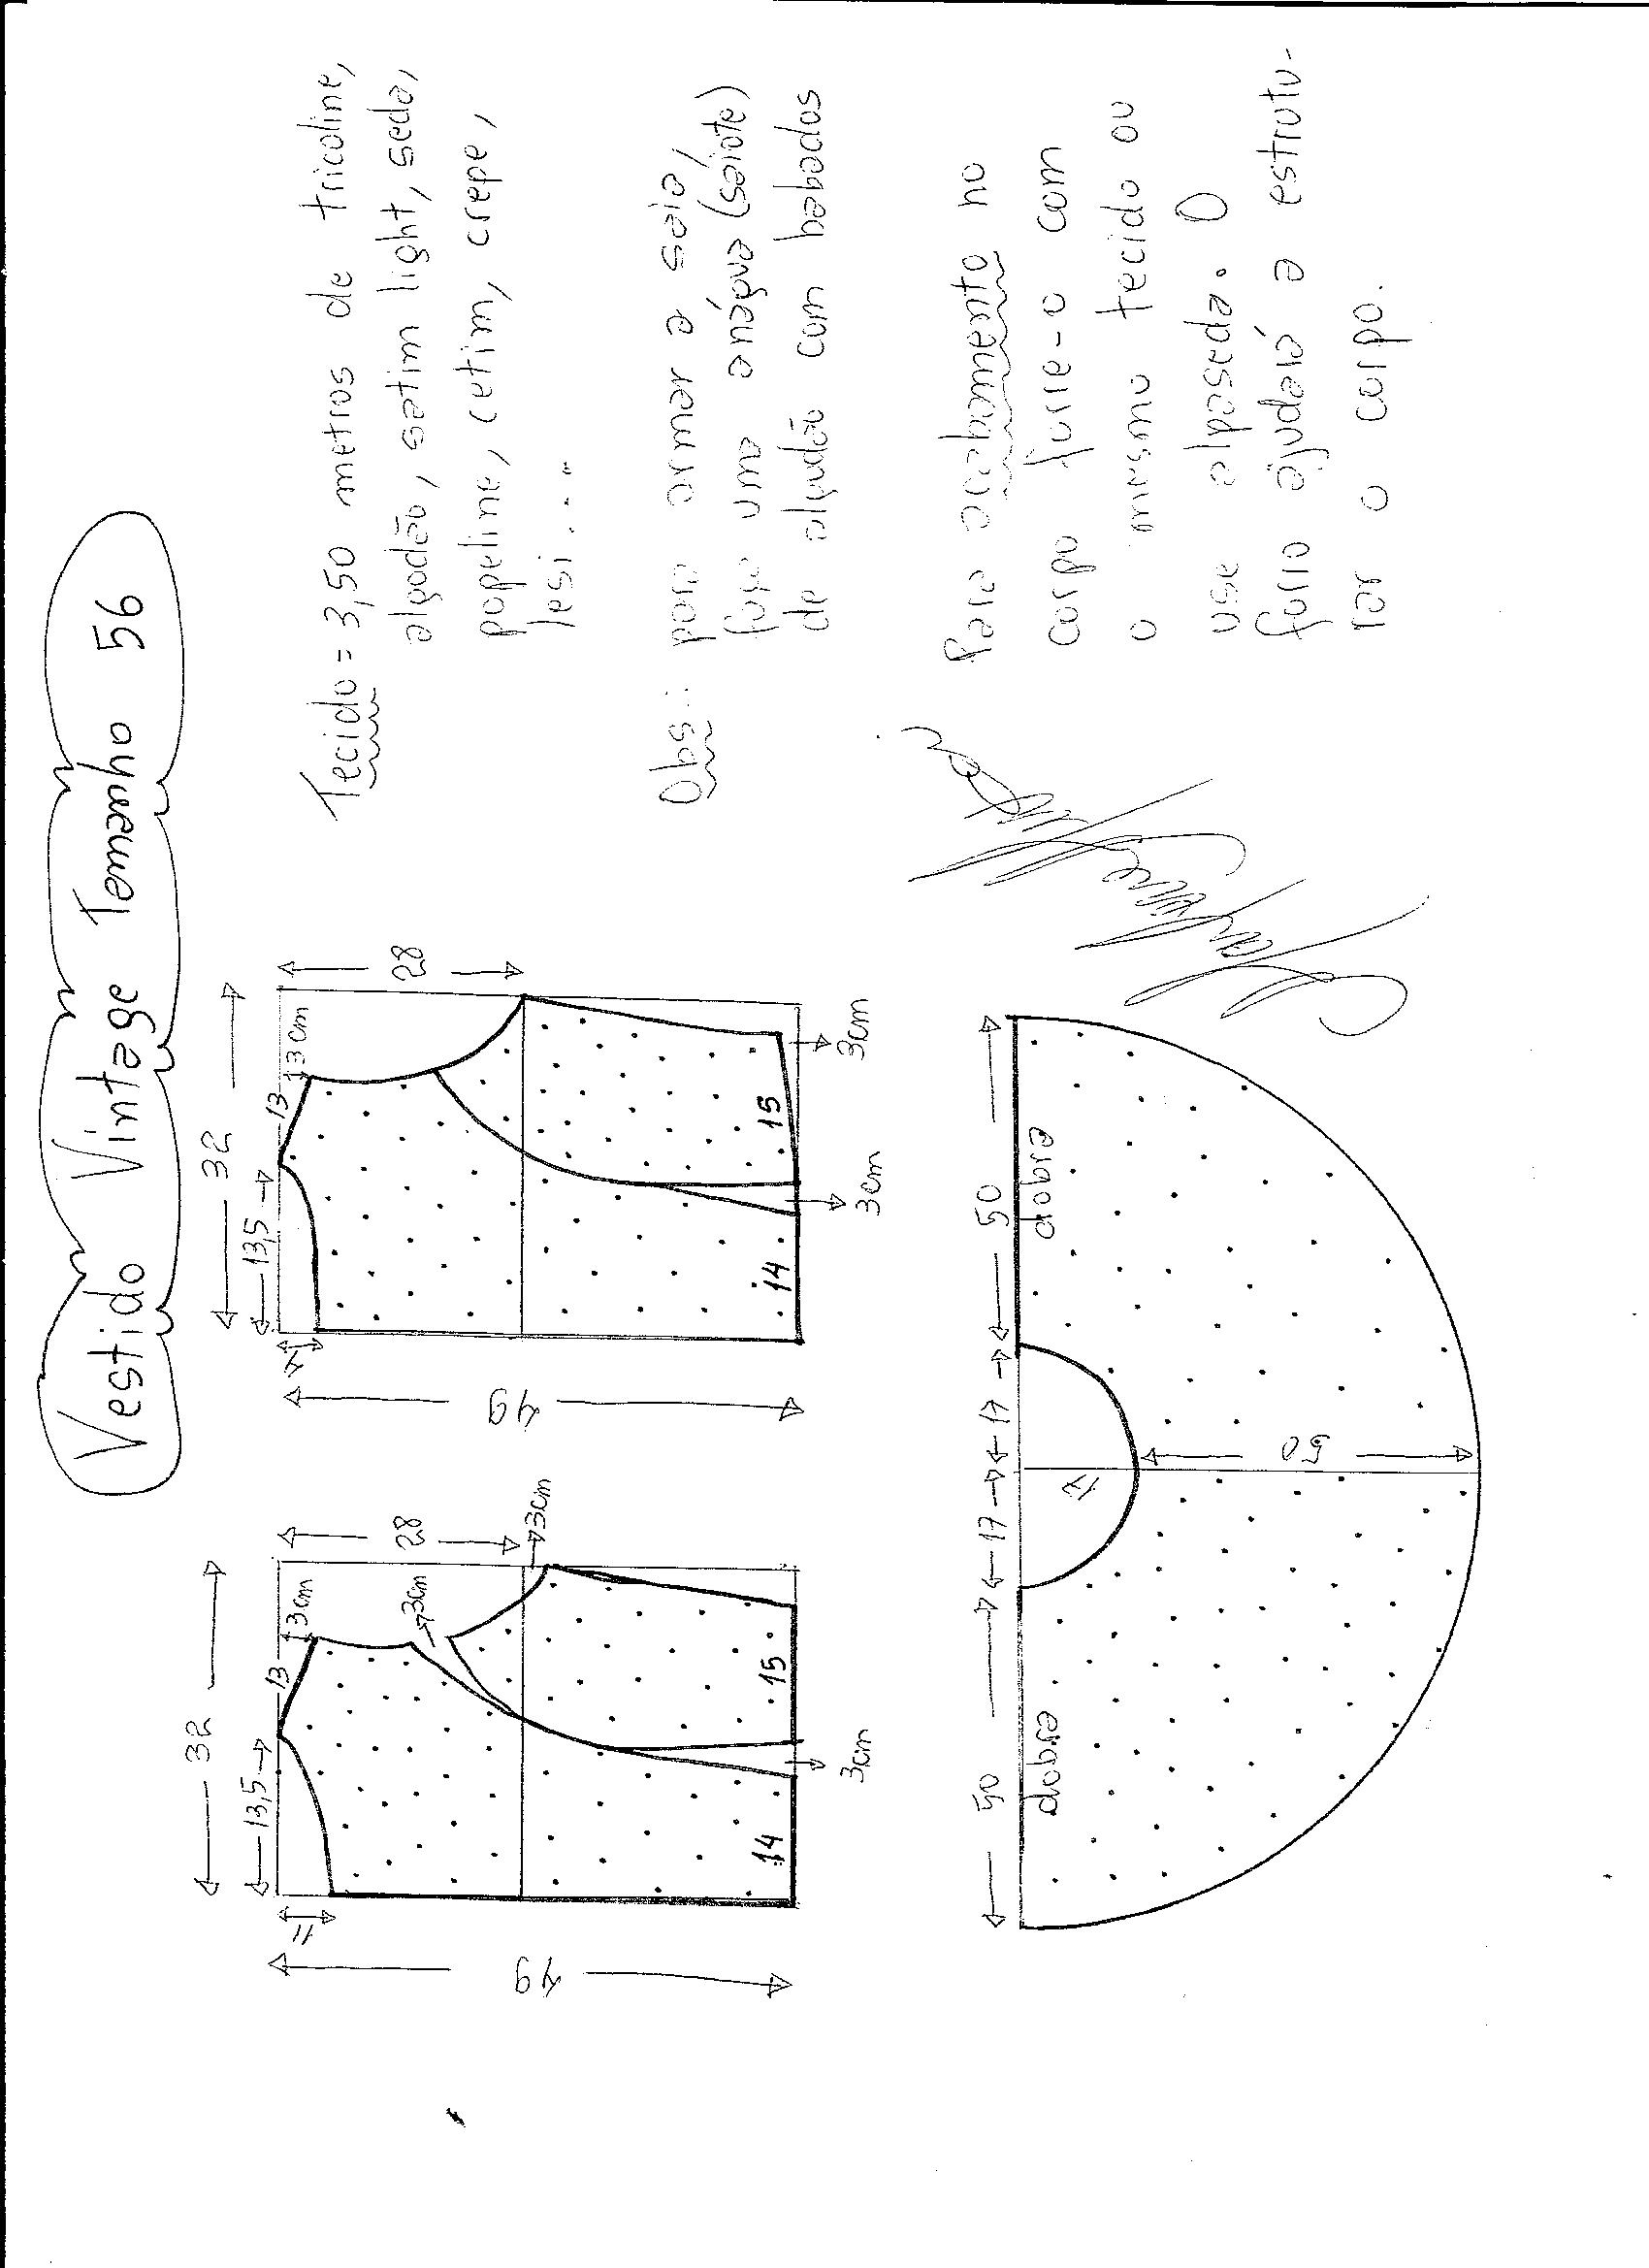 Vestido Vintage Tamanho 56
32
13,5
13
3cm
11
28
3cm
3cm
49
14
15
3cm
32
13,5
13
3cm
7
28
49
14
15
3cm
3cm
Tecido = 3,50 metros de tricoline,
algodão, satim light, seda,
popeline, cetim, crepe,
lesi...
Obs: para armar a saia,
faça uma anágua (saiote)
de algodão com babados
50
17
17
50
dobra
dobra
17
50
Para acabamento no
corpo forre-o com
o mesmo tecido ou
use alpaseda. O
forro ajudará a estrutu-
rar o corpo.